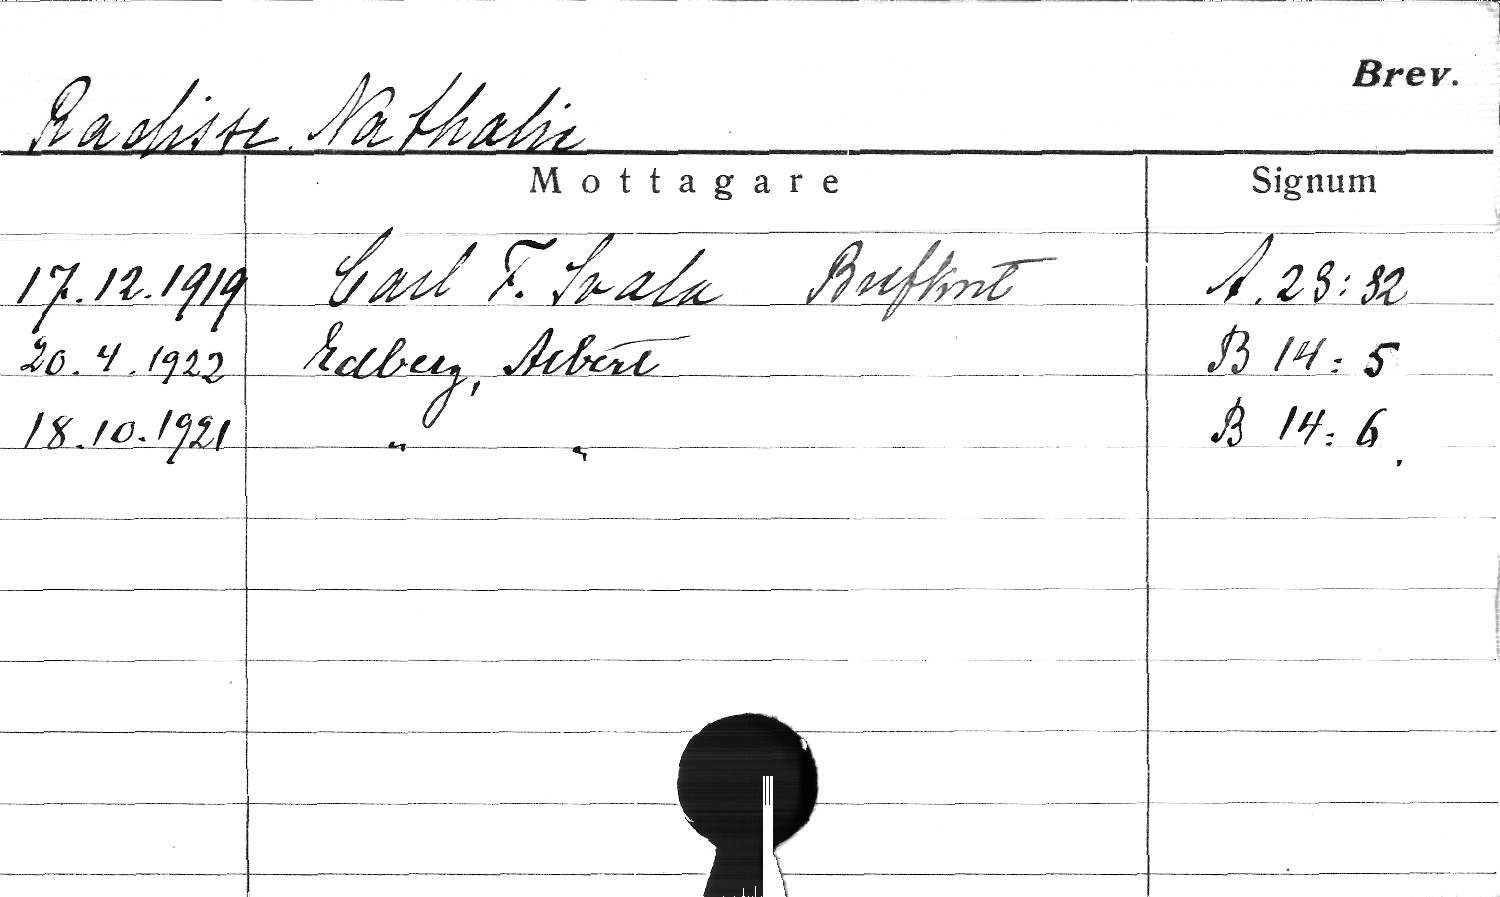 Brev.
Radisse. Nathalie
Mottagare Signum
17.12.1919 Carl F. Svala Brefkort A. 23:32
20.4.1922 Edberg, Albert B 14:5
18.10.1921 " " B 14:6